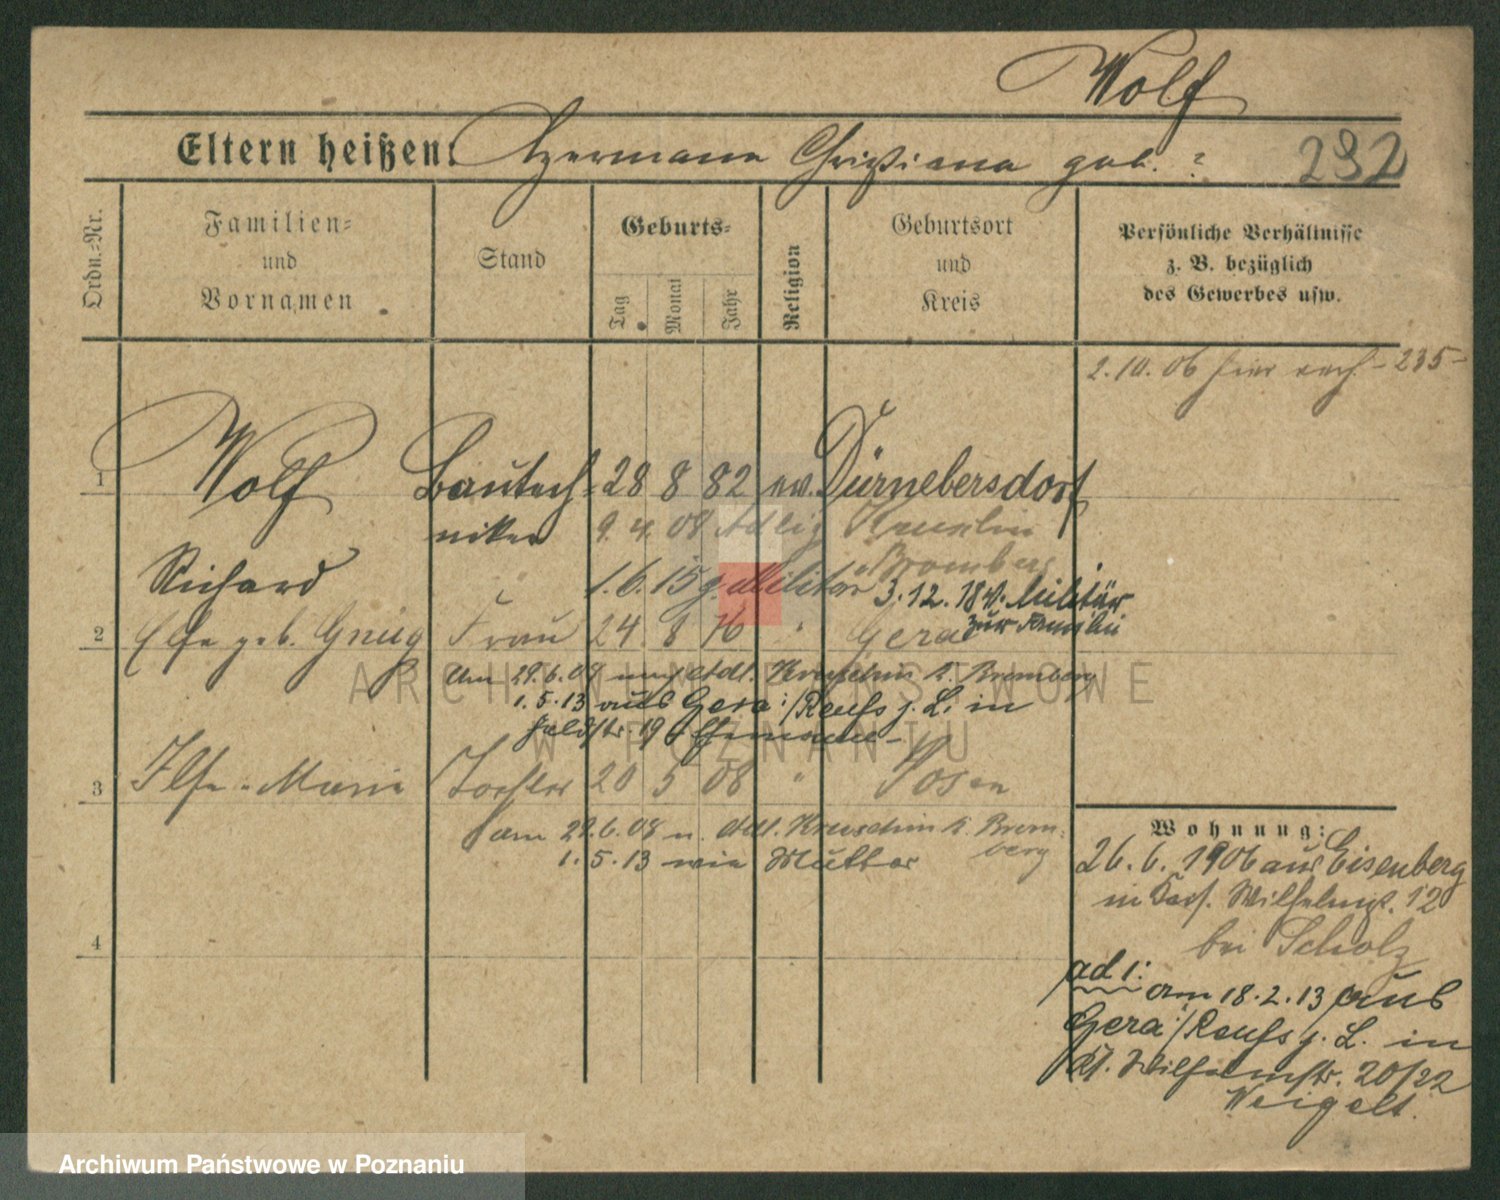 Wolf
Eltern heißen: Hermann Christiana geb. ?
232
Ordn.-Nr.
Familien-
und
Vornamen
Stand
Geburts-
Tag
Monat
Jahr
Religion
Geburtsort
und
Kreis
Persönliche Verhältnisse
z. B. bezüglich
des Gewerbes usw.
2. 10. 06 hier - 235 -
1 Wolf Bautech- 28 8 82 ev. Dürnebersdorf
niker 9. 4. 08 Adlig Kruschin
Bromberg
Richard 1. 6. 15 z. Militär 3. 12. 18 v. Militär
zur Familie
2 Else geb. Gnüg Frau 24 8 76 " Gera
am 29. 6. 08 nach Adl. Kruschin K. Bromberg
1. 5. 13 aus Gera /Reuss j. L. in
Feldstr. 19 Ehemann -
3 Ilse-Marie Tochter 20 5 08 " Posen
am 29. 6. 08 n. Adl. Kruschin K. Brom-
berg
1. 5. 13 wie Mutter
4
Wohnung:
26. 6. 1906 aus Eisenberg
in Wilhelmstr. 12
bei Scholz
ad 1:
am 18. 2. 13 aus
Gera /Reuss j. L. in
Kl. Wilhelmstr. 20/22
Weigelt.
ARCHIWUM PAŃSTWOWE
W POZNANIU
Archiwum Państwowe w Poznaniu